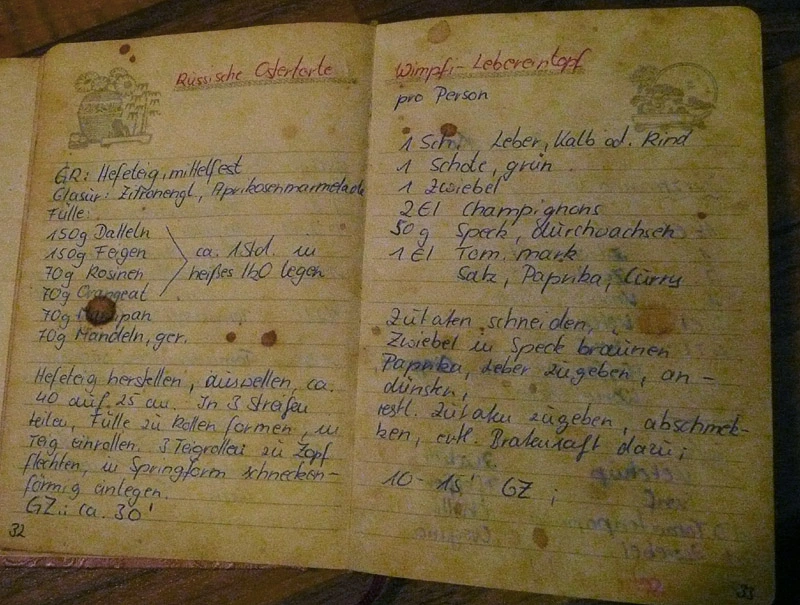 Russische Ostertorte
GR: Hefeteig, mittelfest
Glasur: Zitronengl., Aprikosenmarmelade
Fülle:
150g Datteln
150g Feigen
70g Rosinen
70g Orangeat
ca. 1 Std. in
heißes H2O legen
70g
70g Mandeln, ger.
Hefeteig herstellen, auswellen, ca.
40 auf 25 cm. In 3 Streifen
teilen, Fülle zu Rollen formen, in
Teig einrollen. 3 Teigrollen zu Zopf
flechten, in Springform schnecken-
förmig einlegen.
GZ.: ca. 30'
32
Wimpfi-Lebereintopf
pro Person
1 Sch. Leber, Kalb od. Rind
1 Schote, grün
1 Zwiebel
2 El Champignons
50 g Speck, durchwachsen
1 El Tom. mark
Salz, Paprika, Curry
Zutaten schneiden,
Zwiebel in Speck bräunen
Paprika, Leber zugeben, an-
dünsten,
restl. Zutaten zugeben, abschmek-
ken, evtl. Bratensaft dazu;
10- 15' GZ;
33